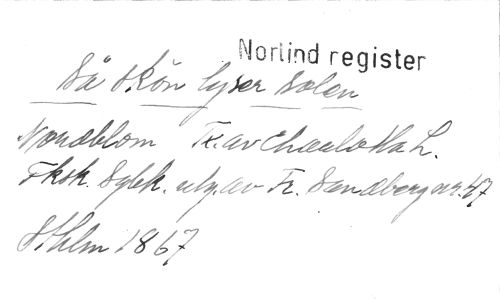 Norlind register
Så skön lyser solen
Nordblom Tr. av Charlotta L.
Fksk. Sylik. utg. av Fr. Sandberg nr. 47
Sthlm 1867